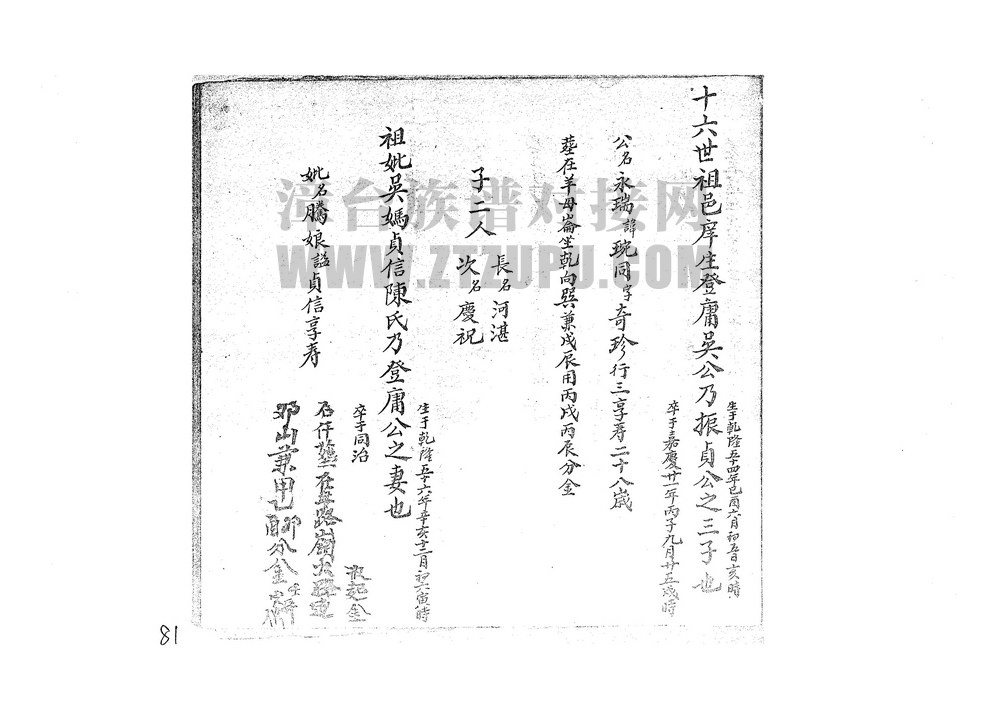 十六世祖邑庠生登庸吳公乃振貞公之三子也
生于乾隆五十四年己酉六月初五日亥時
卒于嘉慶廿一年丙子九月廿五戌時
公名永瑞諱琬同字奇珍行三享寿二十八歲
塟在羊母崙坐乾向巽兼戌辰用丙戌丙辰分金
子二人
長名河湛
次名慶祝
祖妣吳媽貞信陳氏乃登庸公之妻也
生于乾隆五十六年辛亥十二月初六寅時
卒于同治
妣名騰娘謚貞信享寿
漳台族谱对接网
WWW.ZTZUPU.COM
81